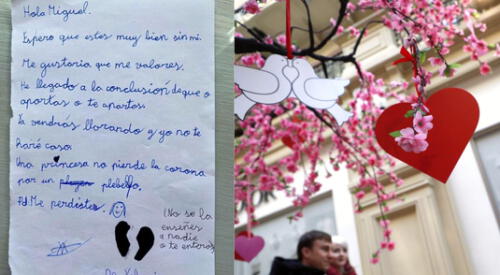 Hola Miguel.
Espero que estes muy bien sin mi.
Me gustaria que me valores.
He llegado a la conclusión de que o
aportas o te apartas.
Ya vendrás llorando y yo no te
haré caso.
Una princesa no pierde la corona
por un plebello.
Pd: Me perdistes.
(No se la
enseñes
a nadie
o te enteras)
De